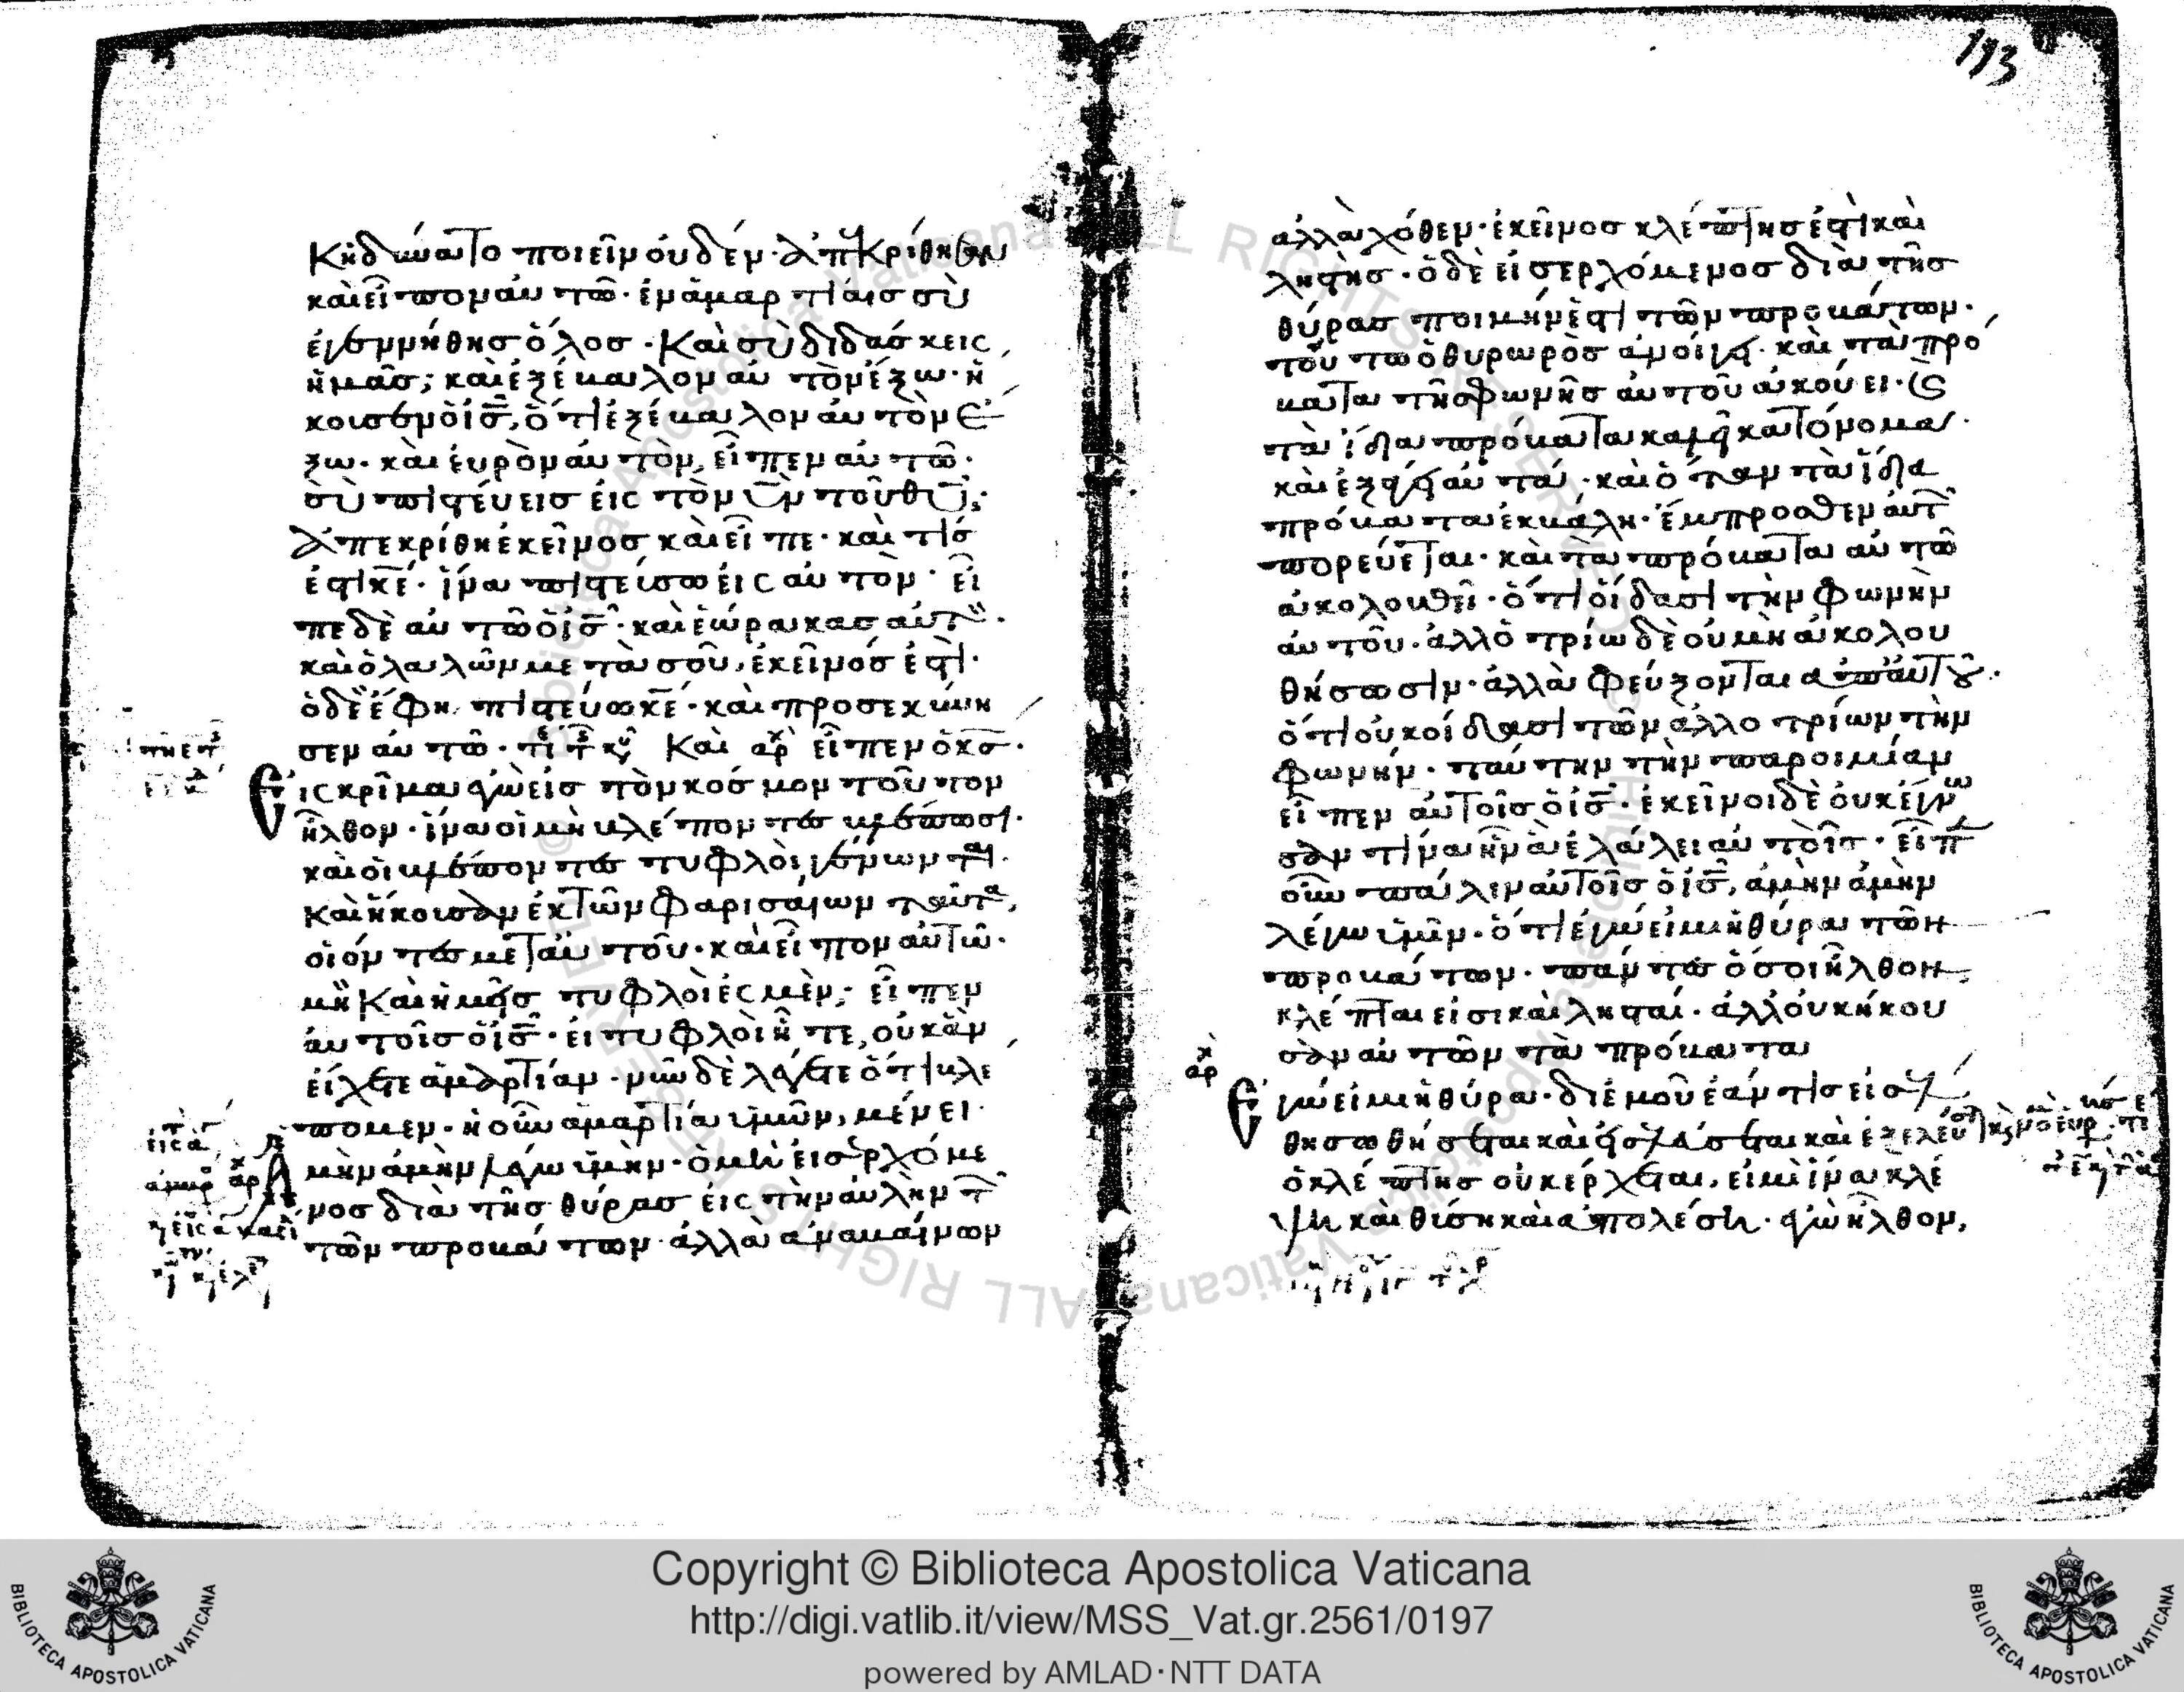 κἠδύνατο ποιεῖν οὐδέν· ἀπεκρίθησαν
καὶ εἶπον αὐτῶ· ἐν ἁμαρτίαις σὺ
ἐγεννήθης ὅλος· Καὶ σὺ διδάσκεις
ἡμᾶς; καὶ ἐξέβαλον αὐτὸν ἔξω· ἤ
κουσεν ὁ ἰς̅, ὅτι ἐξέβαλον αὐτὸν ἔ
ξω· καὶ εὑρὸν αὐτὸν, εἶπεν αὐτῶ·
σὺ πιστεύεις εἰς τὸν υ̅ν τοῦ θυ̅;
ἀπεκρίθη ἐκεῖνος καὶ εἶπε· καὶ τίς
ἐστι κε̅· ἵνα πιστεύσω εἰς αὐτόν· εἶ
πε δὲ αὐτῶ ὁ ἰς̅· καὶ ἑώρακας αὐτὸν·
καὶ ὁ λαλῶν με τὰ σοῦ, ἐκεῖνός ἐστι·
ὁ δὲ ἔφη πιστεύω κε̅· καὶ προσεκύνη
σεν αὐτῶ· Καὶ ἀρχ εἶπεν ὁ κς̅·
Εἰς κρίμα ἐγὼ εἰς τὸν κόσμον τοῦτον
ἦλθον· ἵνα οἱ μὴ βλέποντες βλέπωσι·
καὶ οἱ βλέποντες τυφλοὶ γένωνται·
Καὶ ἤκουσαν ἐκ τῶν φαρισαίων ταῦτα,
οἱ ὄντες μετ' αὐτοῦ· καὶ εἶπον αὐτῶ·
μὴ Καὶ ἡμεῖς τυφλοὶ ἐσμὲν; εἶπεν
αὐτοῖς ὁ ἰς̅· εἰ τυφλοὶ ἦτε, οὐκ ἂν
εἴχετε ἁμαρτίαν· νῦν δὲ λέγετε ὅτι βλέ
πομεν· ἡ οὖν ἁμαρτία ὑμῶν, μένει·
Ἀμὴν ἀμὴν λέγω ὑμὴν· ὁ μὴ εἰσερχόμε
νος διὰ τῆς θύρας εἰς τὴν αὐλὴν τ
τῶν προβάτων· ἀλλὰ ἀναβαίνων
193
ἀλλαχόθεν· ἐκεῖνος κλέπτης ἐστὶ καὶ
ληστὴς· ὁ δὲ εἰσερχόμενος διὰ τῆς
θύρας ποιμήν ἐστι τῶν προβάτων·
τοῦτω ὁ θυρωρὸς ἀνοίγει· καὶ τὰ πρό
βατα τῆς φωνῆς αὐτοῦ ἀκούει· Καὶ
τὰ ἴδια πρόβατα καλεῖ κατ' ὄνομα·
καὶ ἐξάγει αὐτά· καὶ ὅταν τὰ ἴδια
πρόβατα ἐκβάλη· ἔμπροσθεν αὐτ
πορεύεται· καὶ τὰ πρόβατα αὐτῶ
ἀκολουθεῖ· ὅτι οἴδασι τὴν φωνὴν
αὐτοῦ· ἀλλοτρίω δὲ οὐ μὴ ἀκολου
θήσωσιν· ἀλλὰ φεύξονται ἀπ' αὐτοῦ·
ὅτι οὐκ οἴδασι τῶν ἀλλοτρίων τὴν
φωνήν· ταύτην τὴν παροιμίαν
εἶπεν αὐτοῖς ὁ ἰς̅· ἐκεῖνοι δὲ οὐκ ἔγνω
σαν τίνα ἦν ἃ ἐλάλει αὐτοῖς· εἶπεν
οὖν πάλιν αὐτοῖς ὁ ἰς̅, ἀμὴν ἀμὴν
λέγω ὑμῖν· ὅτι ἐγώ εἰμι ἡ θύρα τῶν
προβάτων· πάντες ὅσοι ἦλθον
κλέπται εἰσι καὶ λησταί· ἀλλ' οὐκ ἤκου
σαν αὐτῶν τὰ πρόβατα
Ἐγώ εἰμι ἡ θύρα· δι' ἐμοῦ ἐάν τις εἰσέλ
θη σωθήσεται καὶ εἰσελεύσεται καὶ ἐξελεύσ
ὁ κλέπτης οὐκ ἔρχεται, εἰ μὶ ἵνα κλέ
ψη καὶ θύση καὶ ἀπολέση· ἐγὼ ἦλθον,
Copyright © Biblioteca Apostolica Vaticana
http://digi.vatlib.it/view/MSS_Vat.gr.2561/0197
powered by AMLAD · NTT DATA
BIBLIOTECA APOSTOLICA VATICANA
BIBLIOTECA APOSTOLICA VATICANA